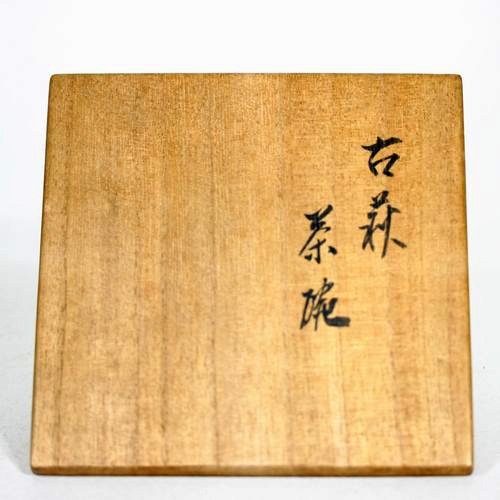 古萩
茶碗